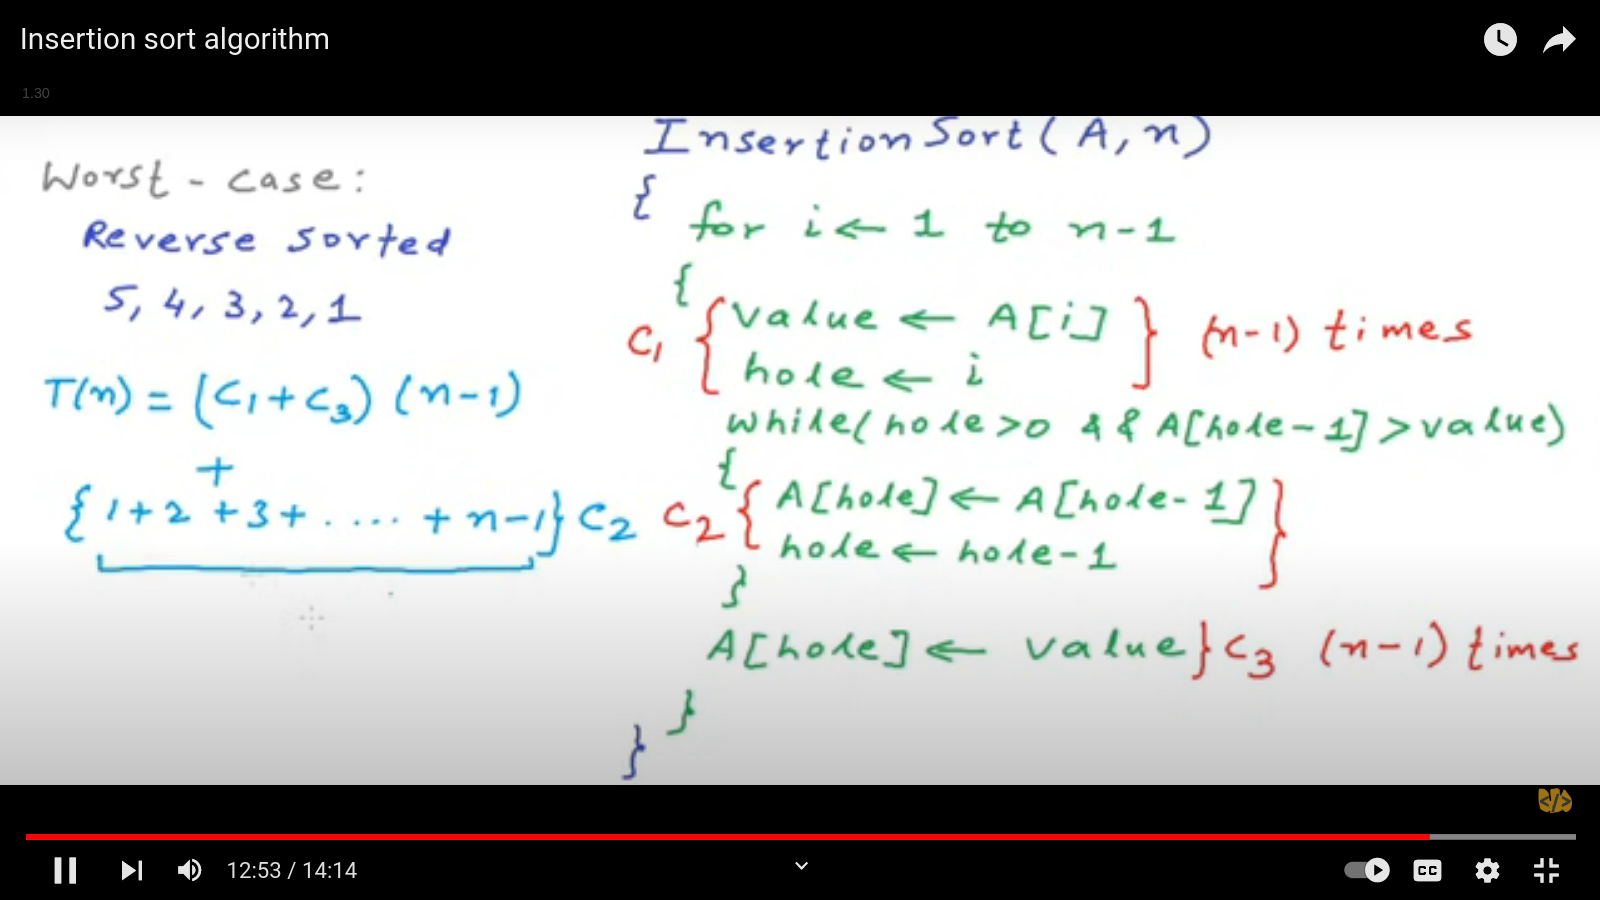 Insertion sort algorithm
1.30
Worst - case:
Reverse sorted
5, 4, 3, 2, 1
T(n) = (C1+C3) (n-1)
+
{1+2+3+ ..... +n-1}C2
InsertionSort(A,n)
{
for i← 1 to n-1
{
C1 { value ← A[i] } (n-1) times
hole ← i
while(hole>0 && A[hole-1]>value)
{
C2 { A[hole]← A[hole-1] }
hole← hole-1
}
A[hole]← value}C3 (n-1) times
}
}
</>
12:53 / 14:14
CC